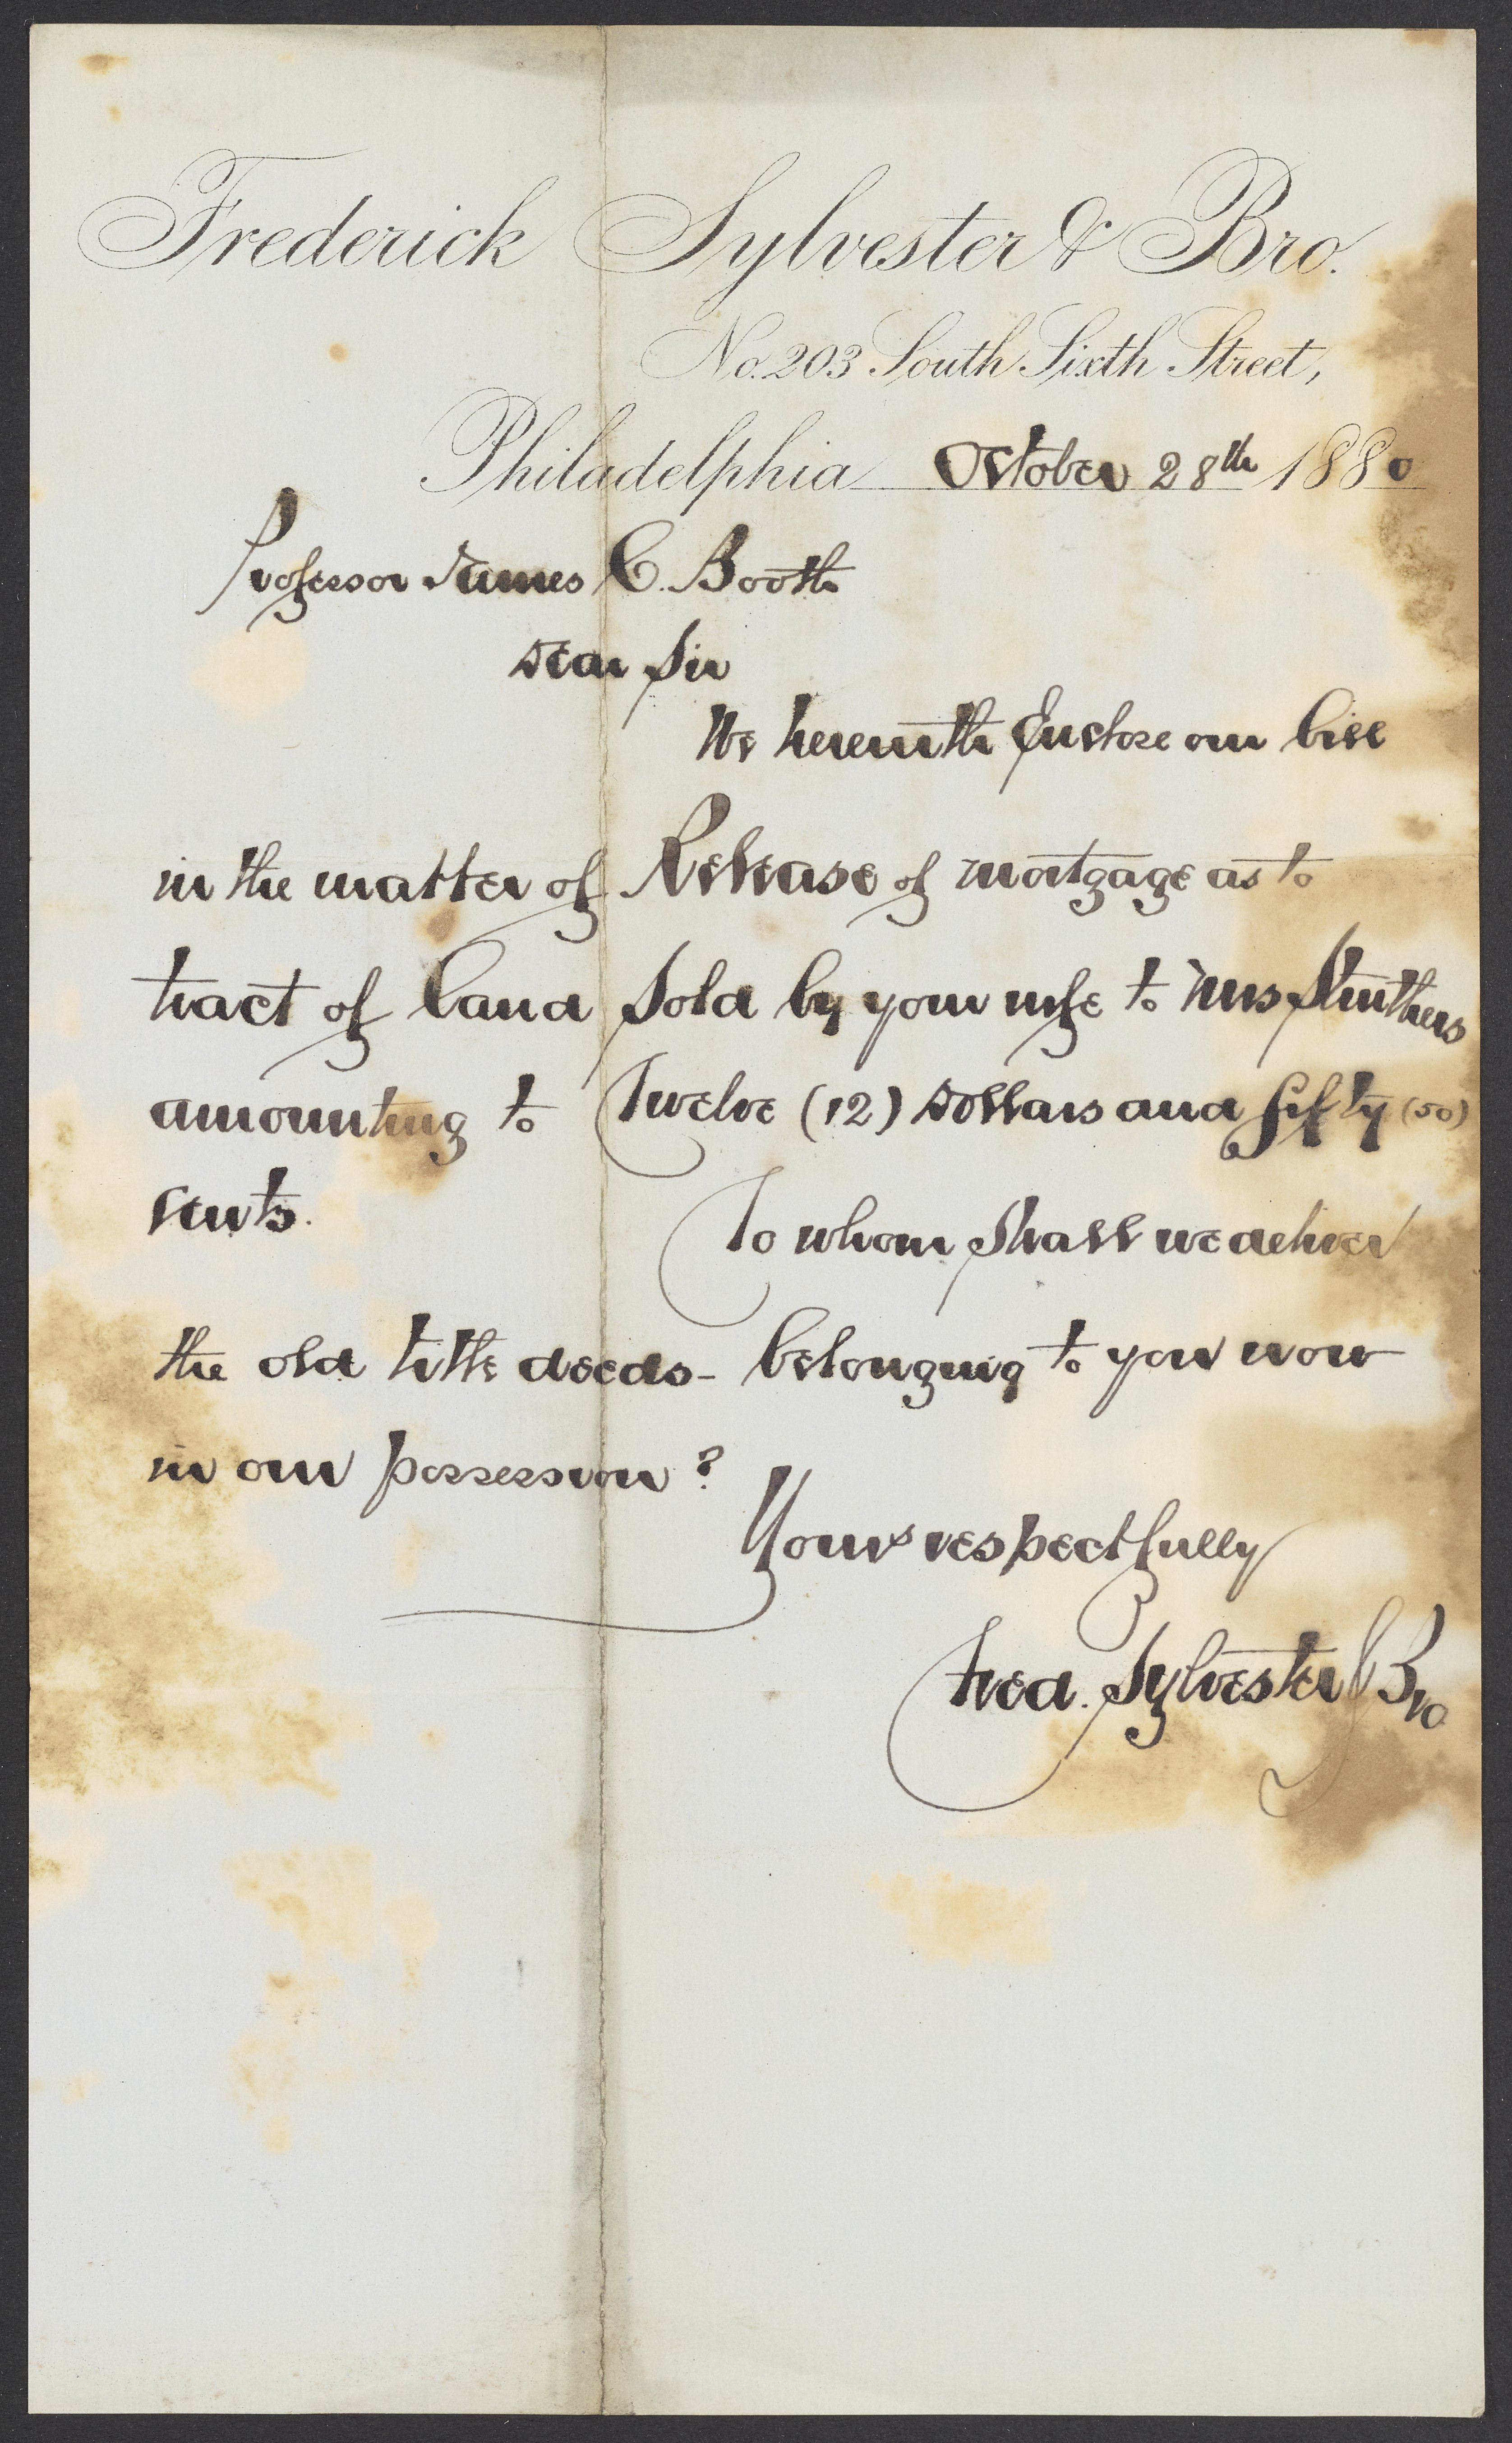 Frederick Sylvester & Bro.
No. 203 South Sixth Street,
Philadelphia October 28th 1880
Professor James C. Booth
Dear Sir
We herewith Enclose our bill
in the matter of Release of mortgage as to
tract of land Sold by your wife to Mrs Struthers
amounting to Twelve (12) Dollars and fifty (50)
cents.
To whom Shall we deliver
the old title deeds - belonging to you now
in our possession?
Yours respectfully
Fred. Sylvester & Bro